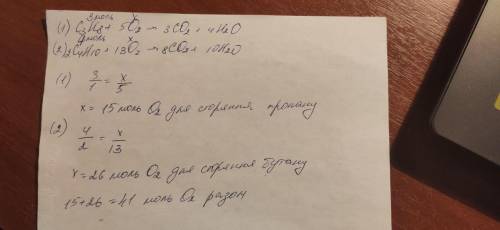 3 моль x
(1) C3H8 + 5O2 → 3CO2 + 4H2O
4 моль x
(2) 2C4H10 + 13O2 → 8CO2 + 10H2O
(1) 3/1 = x/5
x = 15 моль O2 для згоряння пропану
(2) 4/2 = x/13
x = 26 моль O2 для згоряння бутану
15+26 = 41 моль O2 разом